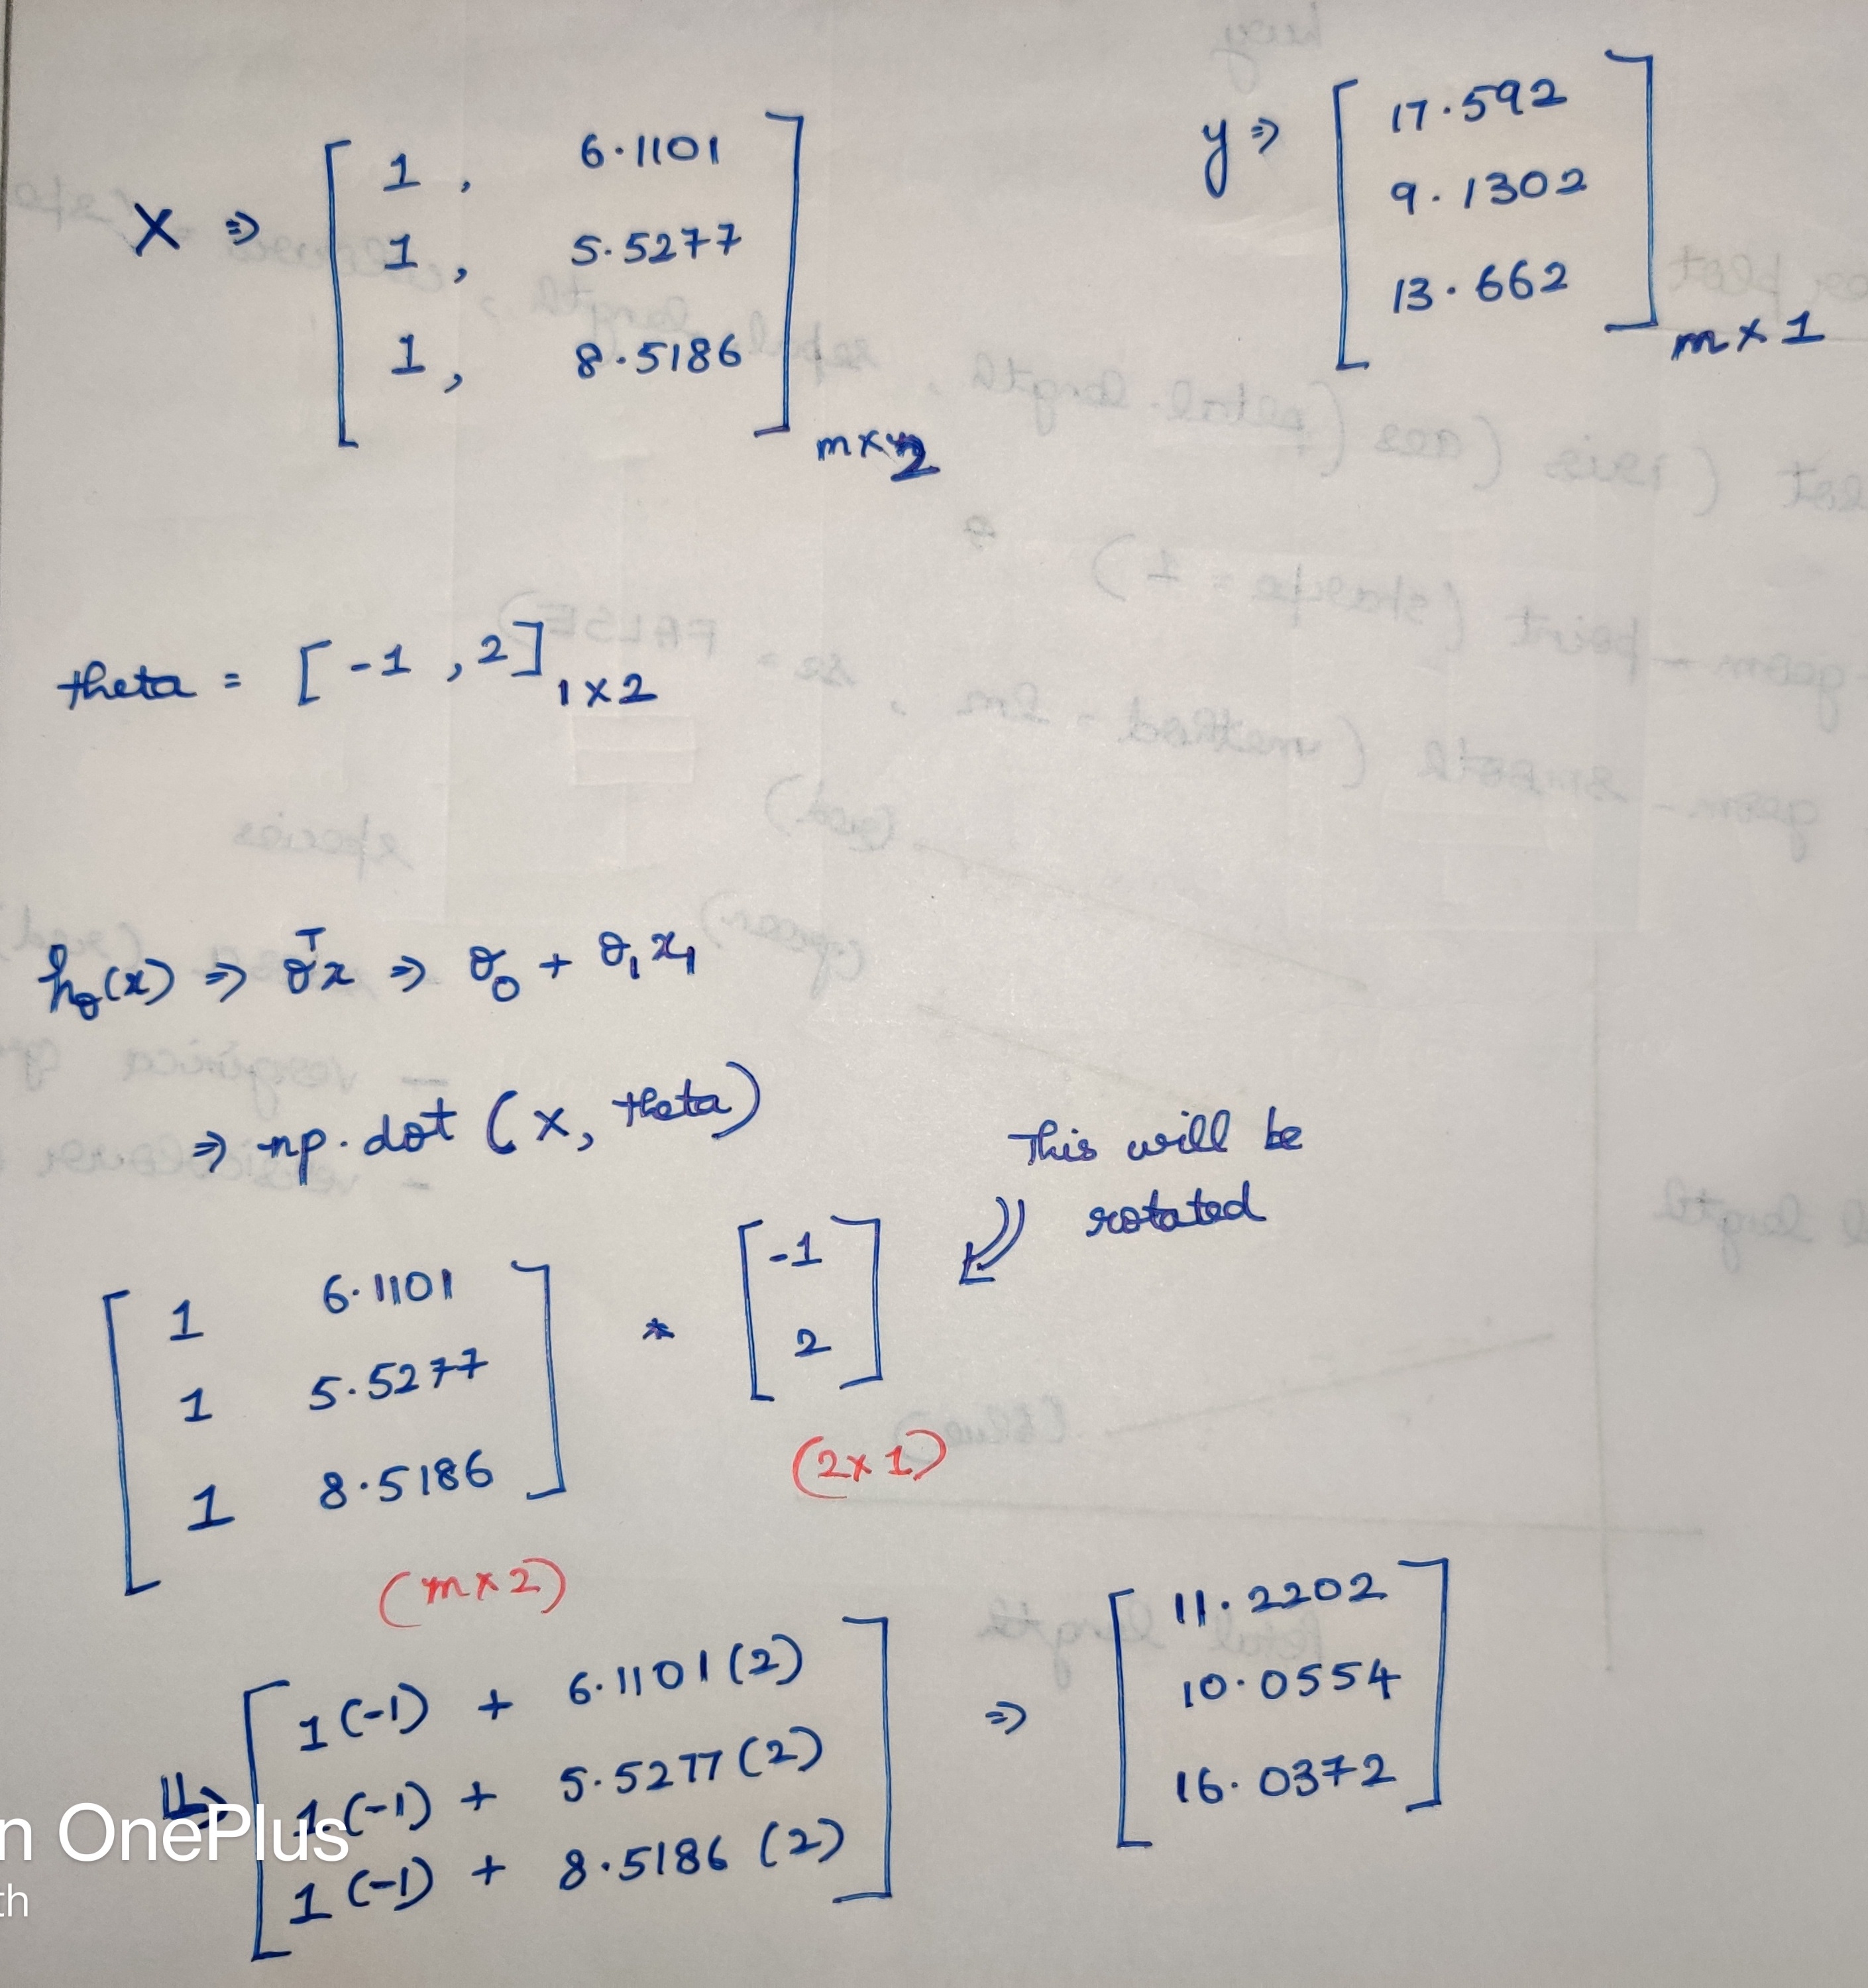 X ⇒ [ 1 , 6.1101
1 , 5.5277
1 , 8.5186 ] m×2
y ⇒ [ 17.592
9.1302
13.662 ] m×1
theta = [-1 , 2] 1×2
hθ(x) ⇒ θᵀx ⇒ θ₀ + θ₁x₁
⇒ np.dot (X, theta)
This will be
rotated
[ 1 6.1101
1 5.5277
1 8.5186 ] * [ -1
2 ]
(m×2)
(2×1)
⇒ [ 1(-1) + 6.1101(2)
1(-1) + 5.5277(2)
1(-1) + 8.5186(2) ]
⇒ [ 11.2202
10.0554
16.0372 ]
n OnePlus
th